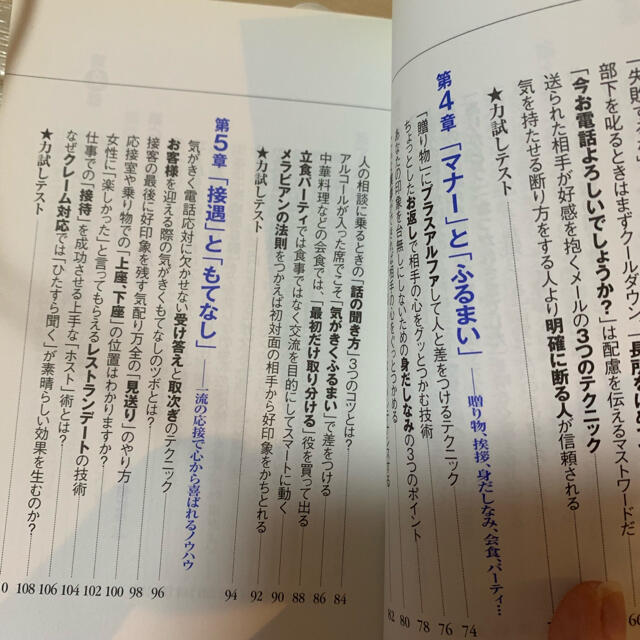 「失敗
部下を叱るときはまずクールダウン、「長所
「今お電話よろしいでしょうか?」は配慮を伝えるマストワードだ
送られた相手が好感を抱くメールの3つのテクニック
気を持たせる断り方をする人より明確に断る人が信頼される
★力試しテスト
第4章 「マナー」と「ふるまい」 ――贈り物、挨拶、身だしなみ、会食、パーティ… 74
「贈り物」にプラスアルファして人と差をつけるテクニック 76
ちょっとしたお返しで相手の心をグッとつかむ技術 78
あなたの印象を台無しにしないための身だしなみの3つのポイント 80
相手の心をぐっとつかめる 82
人の相談に乗るときの「話の聞き方」3つのコツとは? 84
アルコールが入った席でこそ「気がきくふるまい」で差をつける 86
中華料理などの会食では、「最初だけ取り分ける」役を買って出る 88
立食パーティでは食事ではなく交流を目的にしてスマートに動く 90
メラビアンの法則をつかえば初対面の相手から好印象をかちとれる 92
★力試しテスト
第5章 「接遇」と「もてなし」 ――一流の応接で心から喜ばれるノウハウ 94
気がきく電話応対に欠かせない受け答えと取次ぎのテクニック 96
お客様を迎える際の気がきくもてなしのツボとは? 98
接客の最後に好印象を残す気配り万全の「見送り」のやり方 100
応接室や乗り物での「上座、下座」の位置はわかりますか? 102
女性に「楽しかった」と言ってもらえるレストランデートの技術 104
仕事での「接待」を成功させる上手な「ホスト」術とは? 106
なぜクレーム対応では「ひたすら聞く」が素晴らしい効果を生むのか? 108
★力試しテスト 0